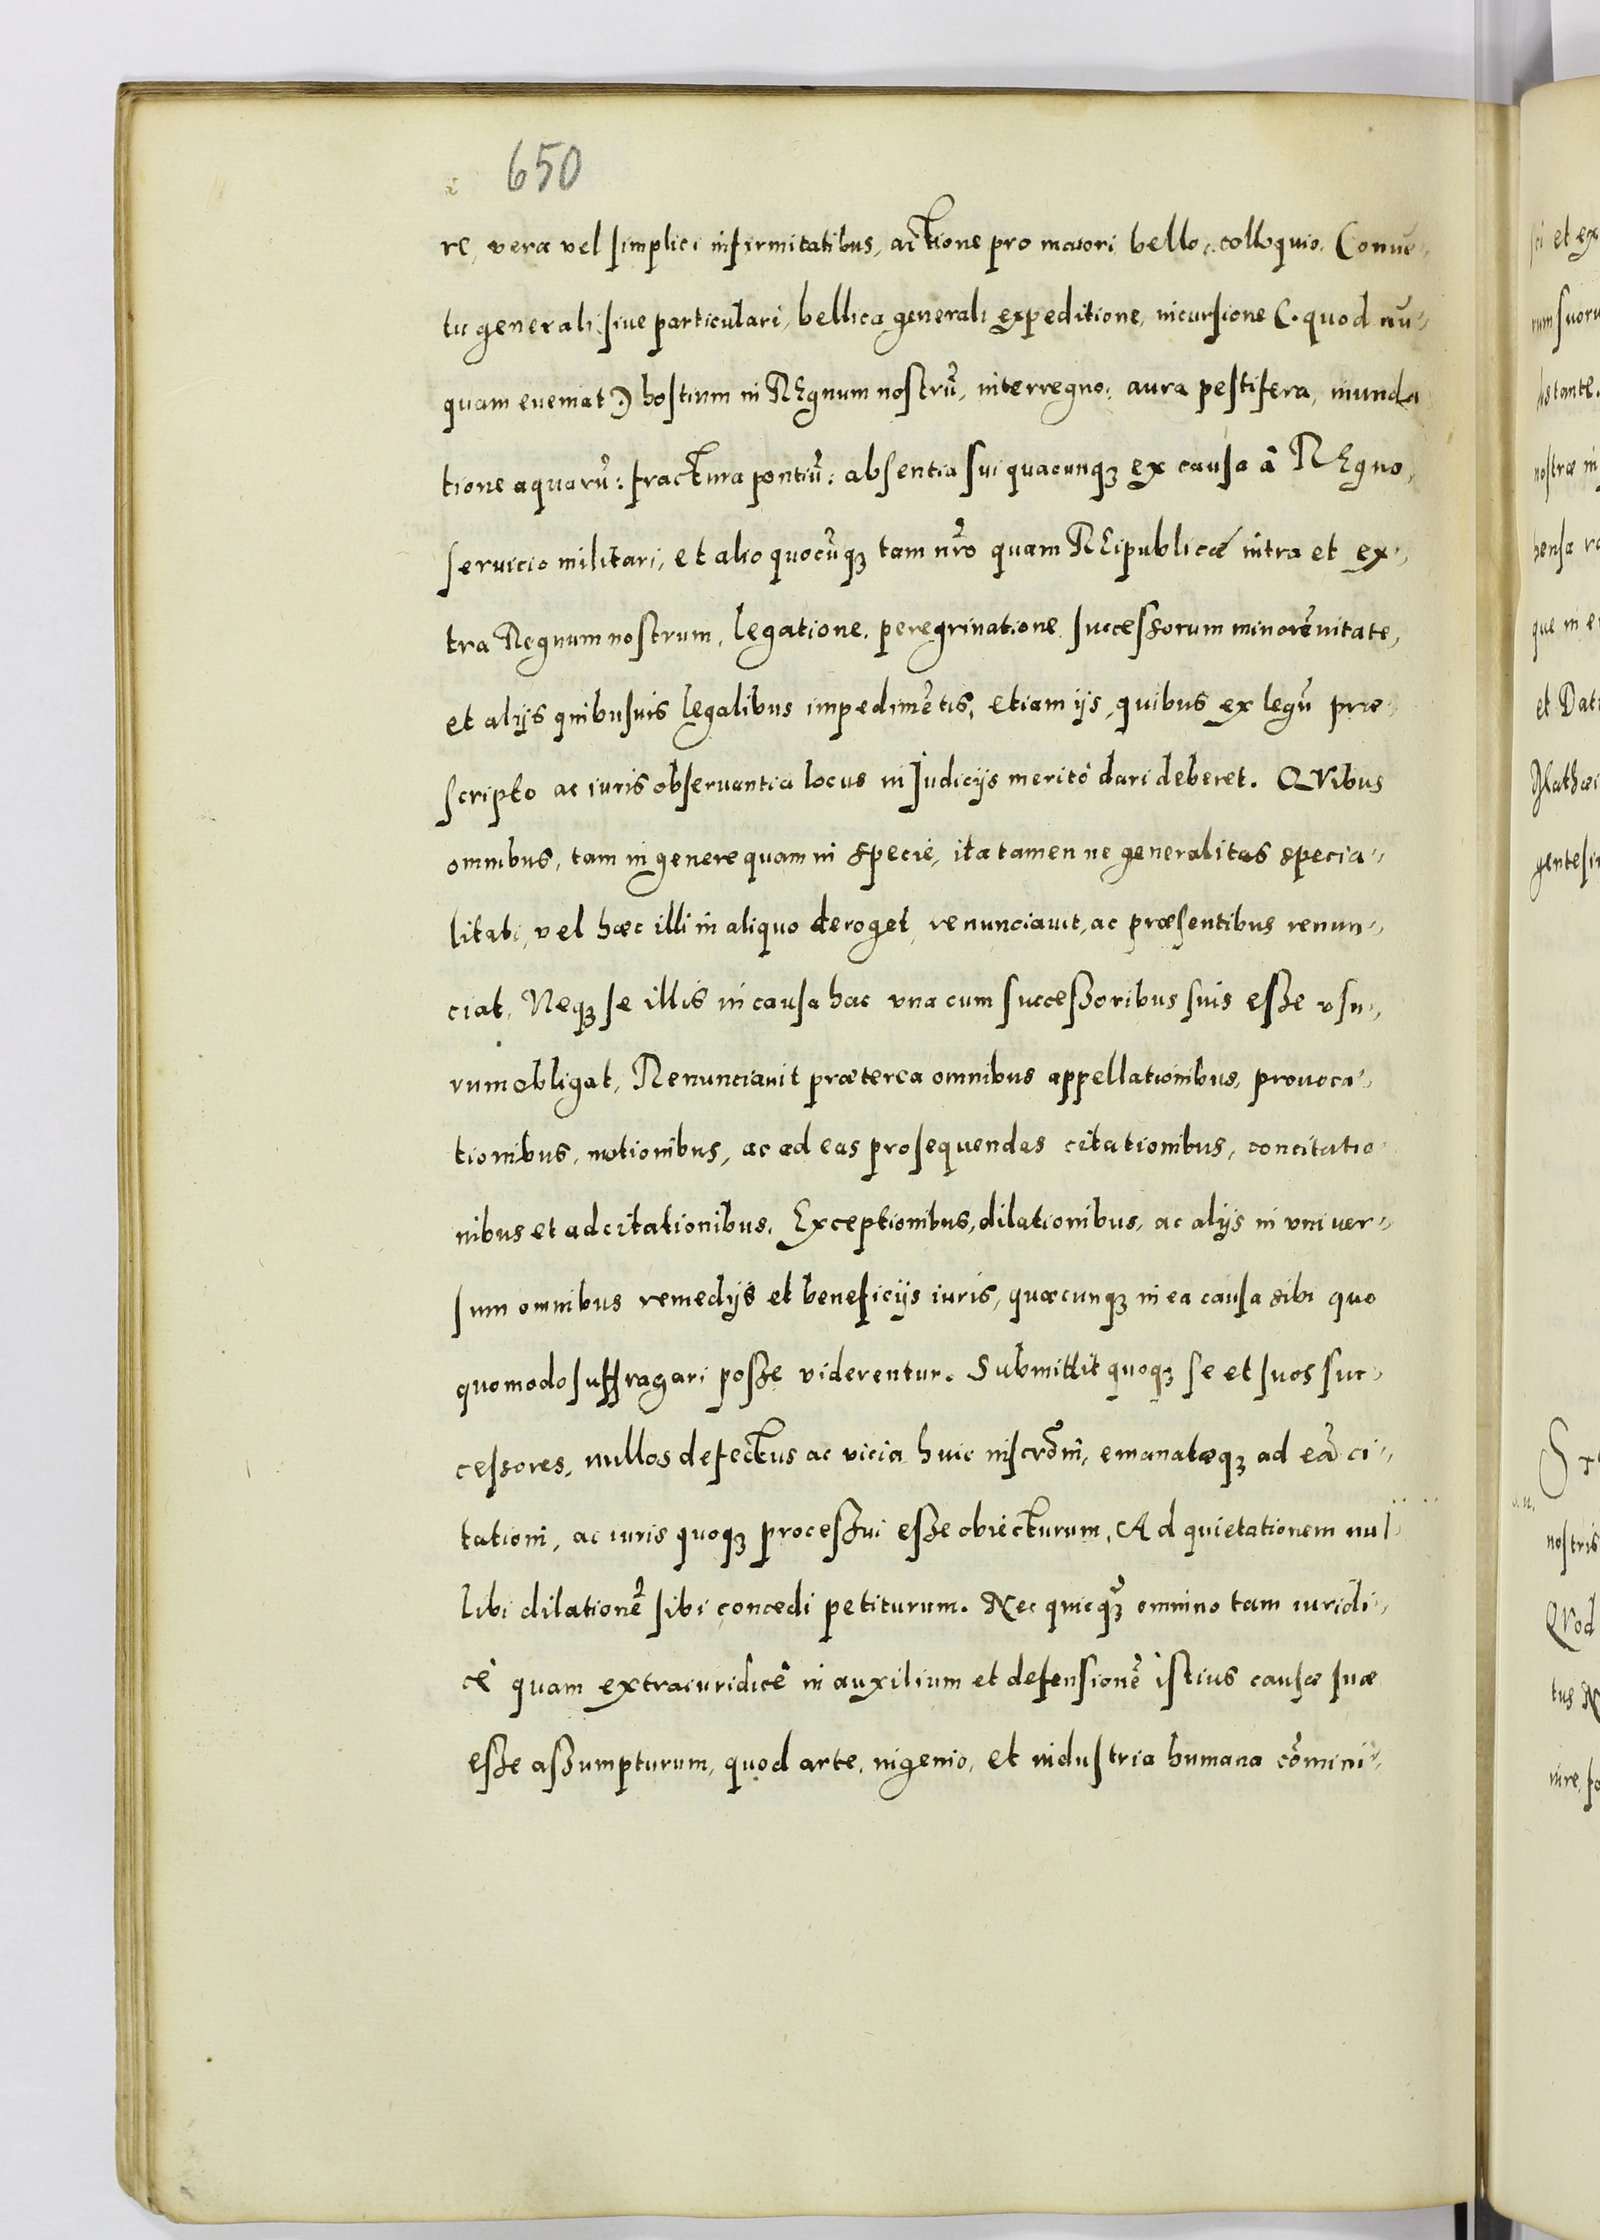 650
re, vera vel simplici infirmitatibus, actione pro maiori, bello, colloquio, Convē-
tu generali, sive particulari, bellica generali expeditione, incursione (quod nū-
quam eveniat) hostium in REgnum nostrū, interregno, aura pestifera, inunda
tione aquarū: fractura pontiū: absentia sui quacunq3 ex causa â REgno,
servicio militari, et alio quocūq3 tam nr̄o quam REipublicæ intra et ex-
tra Regnum nostrum, legatione, peregrinatione, successorum minorēnitate,
et alijs quibusvis legalibus impedimētis, etiam ijs, quibus ex legū præ-
scripto ac iuris observantia locus in Judicijs meritò dari deberet. QVibus
omnibus, tam in genere quam in specie, ita tamen ne generalitas specia-
litati, vel hæc illi in aliquo deroget, renunciavit, ac præsentibus renun-
ciat, Neq3 se illis in causa hac una cum successoribus suis esse usu-
rum obligat, Renunciavit præterea omnibus appellationibus, provoca-
tionibus, motionibus, ac ad eas prosequendas citationibus, concitatio
nibus et adcitationibus, Exceptionibus, dilationibus, ac alijs in univer-
sum omnibus remedijs et beneficijs iuris, quæcunq3 in ea causa sibi quo
quomodo suffragari posse viderentur. Submittit quoq3 se et suos suc-
cessores, nullos defectus ac vicia huic inscrōni, emanatæq3 ad eā ci-
tationi, ac iuris quoq3 processui esse obiecturum, Ad quietationem nul-
libi dilationē sibi concedi petiturum. Nec quicq̄3 omnino tam iuridi-
cè quam extraiuridicê in auxilium et defensionē istius causæ suæ
esse assumpturum, quod arte, ingenio, et industria humana cōmini-